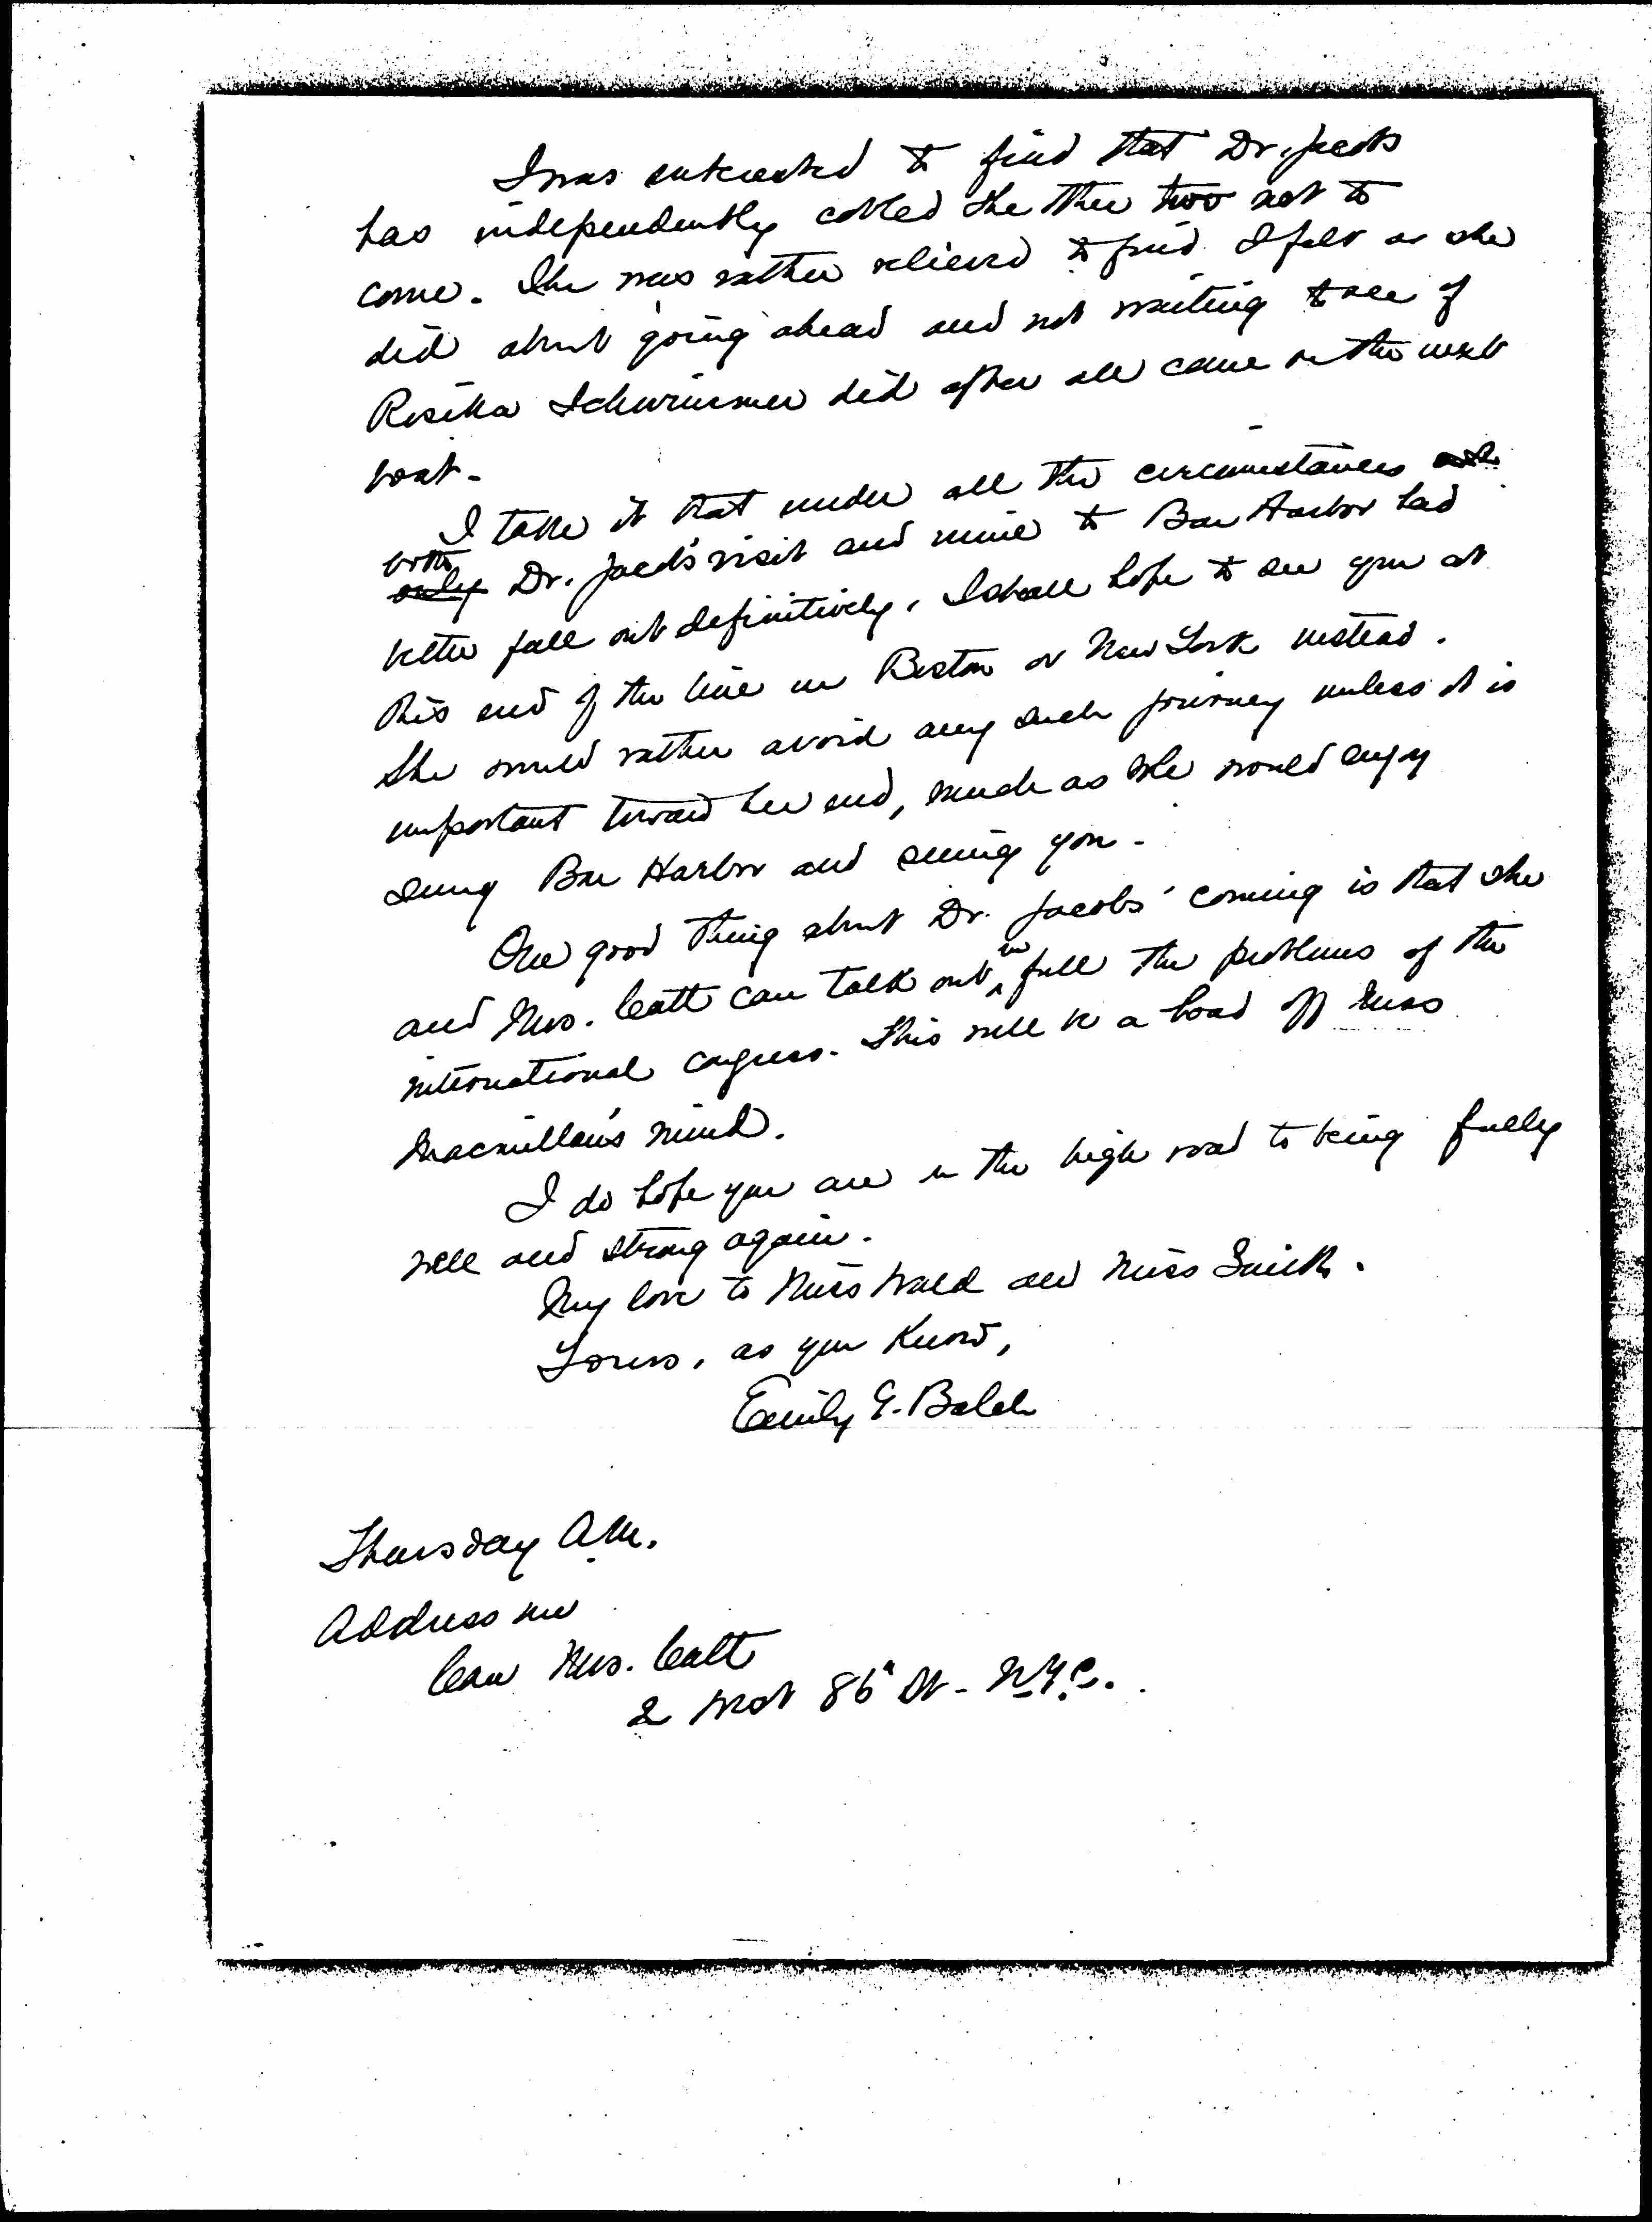 I was interested to find that Dr. Jacobs
has independently cabled the other two not to
come. She was rather relieved to find I felt as she
did about going ahead and not waiting to see if
Rosika Schwimmer did after all come on the next
boat.
I take it that under all the circumstances
both
only Dr. Jacobs' visit and mine to Bar Harbor had
better fall out definitively. I shall hope to see you at
this end of the line in Boston or New York instead.
She would rather avoid any such journey unless it is
important toward her end, much as she would enjoy
seeing Bar Harbor and seeing you.
One good thing about Dr. Jacobs' coming is that she
and Mrs. Catt can talk out in full the problems of the
international congress. This will be a load off Miss
Macmillan's mind.
I do hope you are on the high road to being fully
well and strong again.
My love to Miss Wald and Miss Smith.
Yours, as you know,
Emily G. Balch
Thursday A.M.
Address me
Care Mrs. Catt
2 West 86" St - N.Y.C.